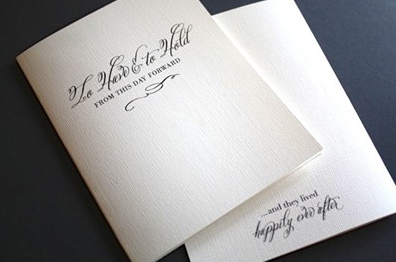 To Have & to Hold
FROM THIS DAY FORWARD
...and they lived
happily ever after